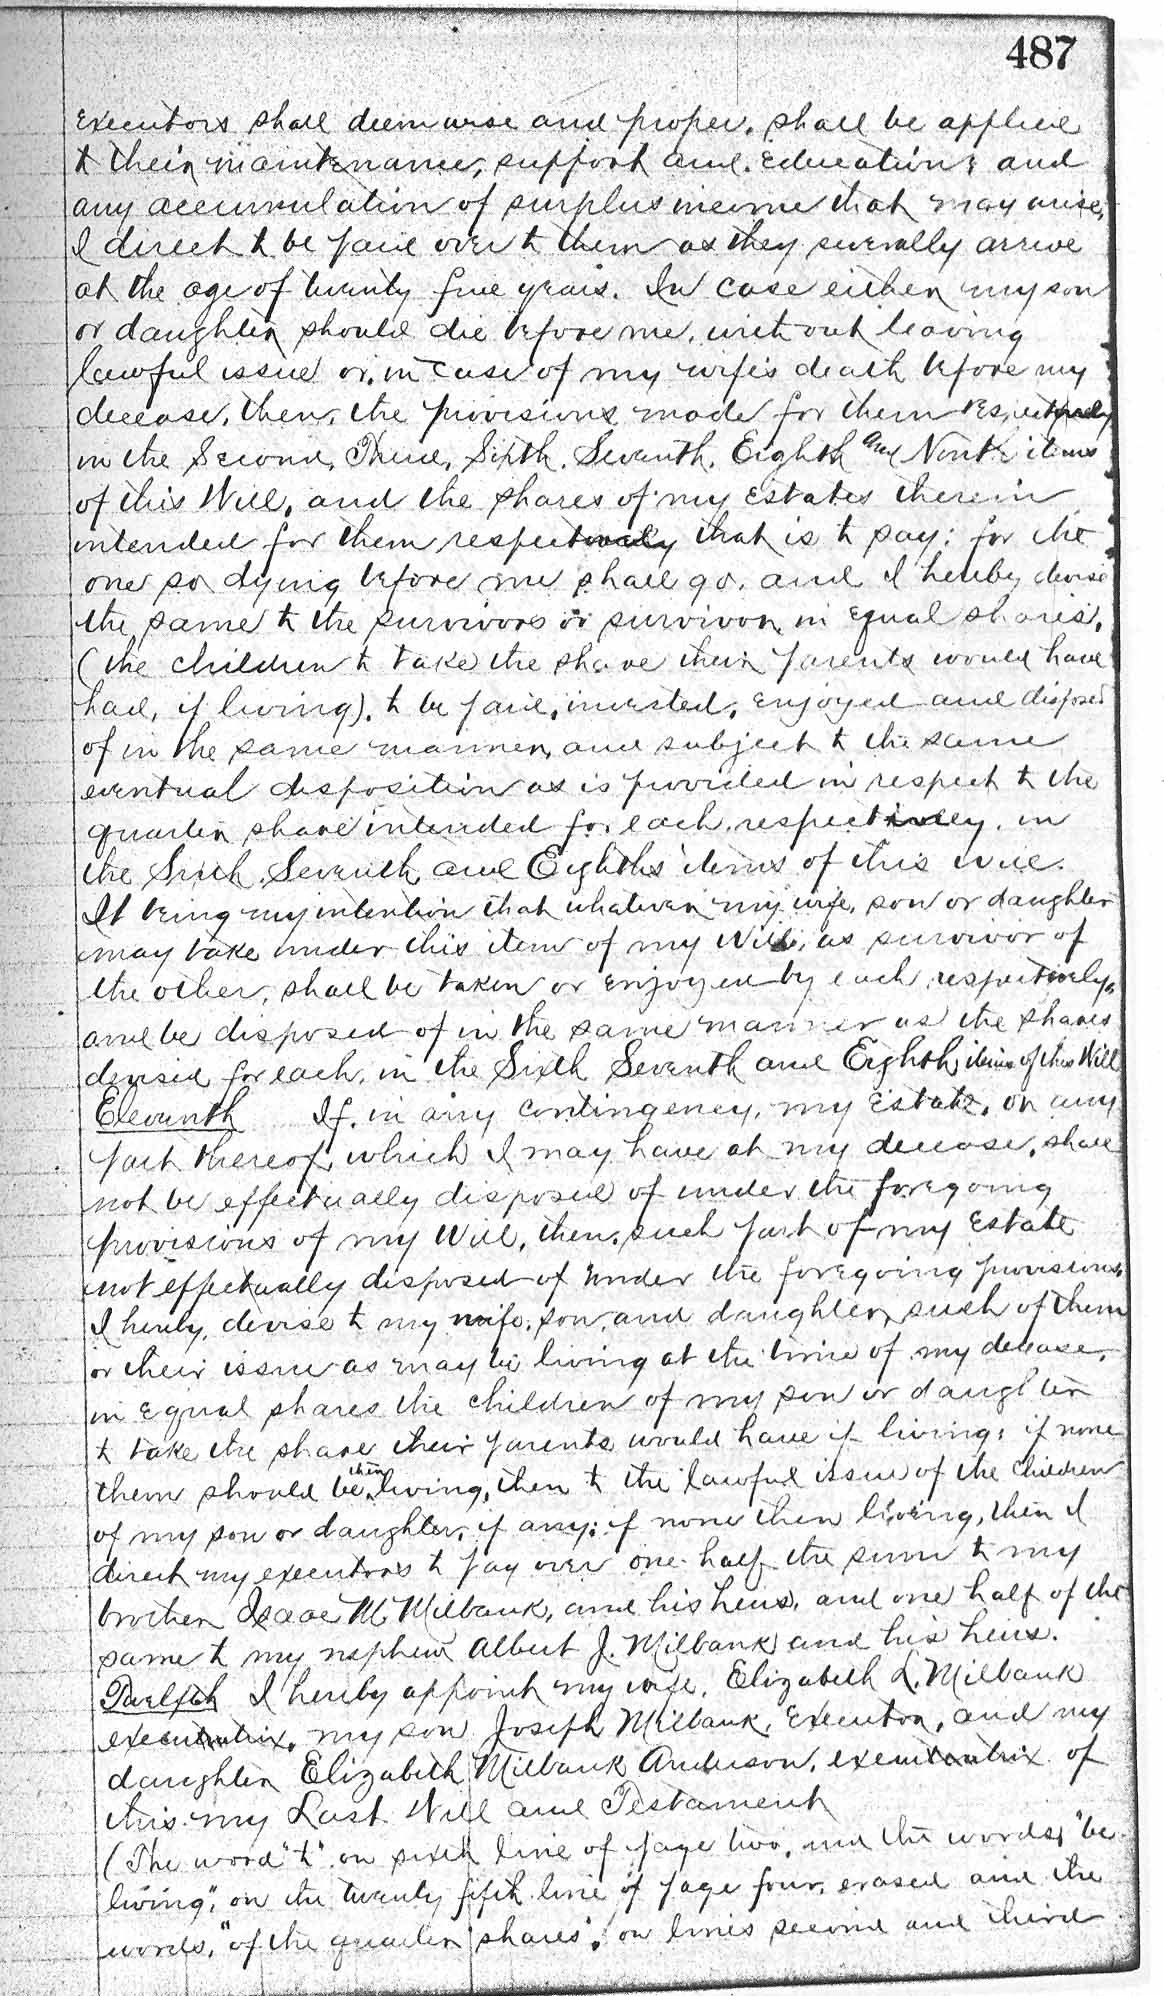 487
executors shall deem wise and proper, shall be applied
to their maintenance, support and education; and
any accumulation of surplus income that may arise,
I direct to be paid over to them as they severally arrive
at the age of twenty five years. In case either my son
or daughter should die before me, without leaving
lawful issue or, in case of my wife's death before my
decease, then, the provisions made for them respectively
in the Second, Third, Sixth, Seventh, Eighth and Ninth items
of this Will, and the shares of my Estates therein
intended for them respectively that is to say: for the
one so dying before me shall go, and I hereby devise
the same to the survivors or survivor, in equal shares,
(the children to take the share their parents would have
had, if living), to be paid, invested, enjoyed and disposed
of in the same manner, and subject to the same
eventual disposition as is provided in respect to the
quarter share intended for each, respectively, in
the Sixth, Seventh, and Eighth items of this Will.
It being my intention that whatever my wife, son or daughter
may take under this item of my Will, as survivor of
the other, shall be taken or enjoyed by each, respectively,
and be disposed of in the same manner as the shares
devised for each, in the Sixth Seventh and Eighth items of this Will
Eleventh If, in any contingency, my Estate, or any
part thereof, which I may have at my decease, shall
not be effectually disposed of under the foregoing
provisions of my Will, then, such part of my Estate
not effectually disposed of under the foregoing provisions,
I hereby, devise to my wife, son, and daughter, such of them
or their issue as may be living at the time of my decease,
in equal shares the children of my son or daughter
to take the share their parents would have if living; if none
them should be then living, then to the lawful issue of the children
of my son or daughter, if any; if none then living, then I
direct my executors to pay over one half the sum to my
brother Isaac M. Milbank, and his heirs, and one half of the
same to my nephew Albert J. Milbank and his heirs.
Twelfth I hereby appoint my wife, Elizabeth L. Milbank
executrix, my son Joseph Milbank, Executor, and my
daughter Elizabeth Milbank Anderson, executrix of
this my Last Will and Testament
(The word "to" on sixth line of page two, and the words, "be
living", on the twenty fifth line of page four, erased and the
words, "of the quarter shares", on lines second and third